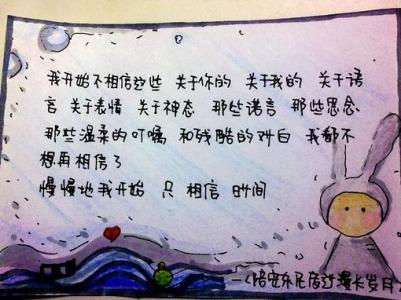 我开始不相信这些 关于你的 关于我的 关于语
言 关于表情 关于神态 那些诺言 那些思念
那些温柔的叮嘱 和残酷的对白 我都不
想再相信了
慢慢地我开始 只 相信 时间
——《陪安东尼度过漫长岁月